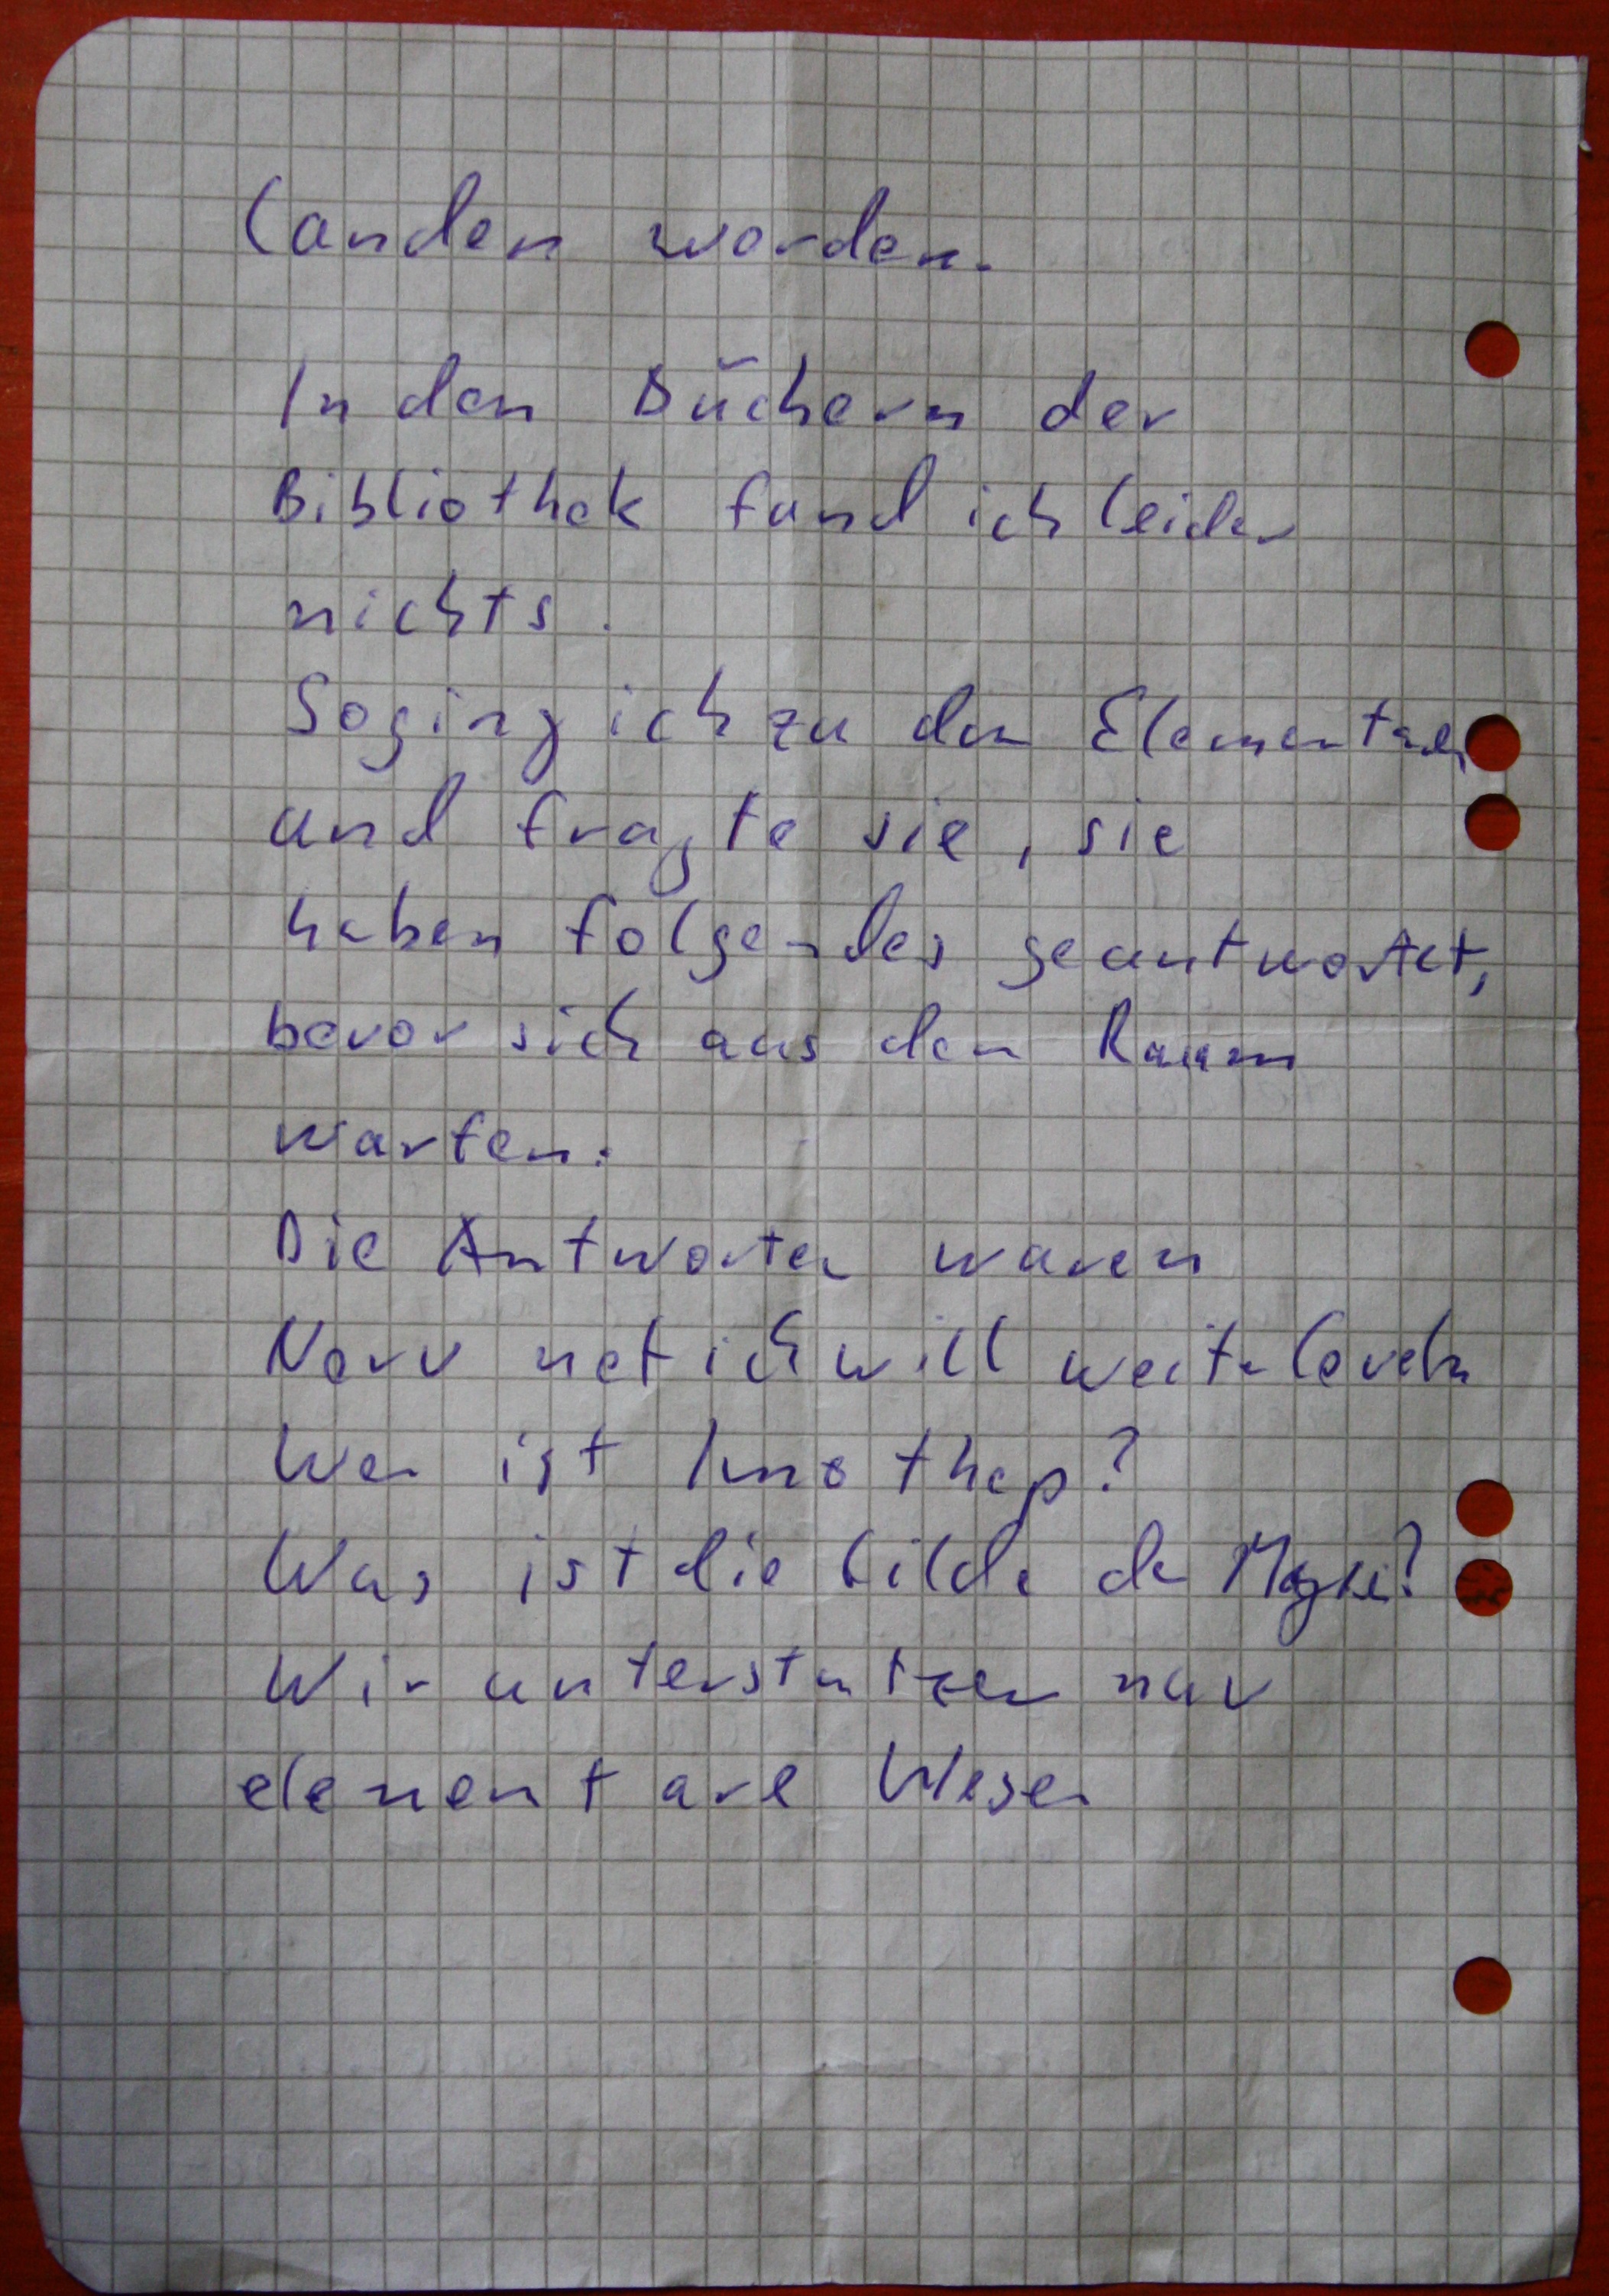 landen worden.
In den Büchern der
Bibliothek fand ich leider
nichts.
So ging ich zu den Elementaren
und fragte sie, sie
haben folgendes geantwortet,
bevor sich aus den Raum
warfen:
Die Antworten waren
Nerv net ich will weiterleveln
Wer ist Imothep?
Was ist die Gilde der Magie?
Wir unterstutzen nur
elementare Wesen